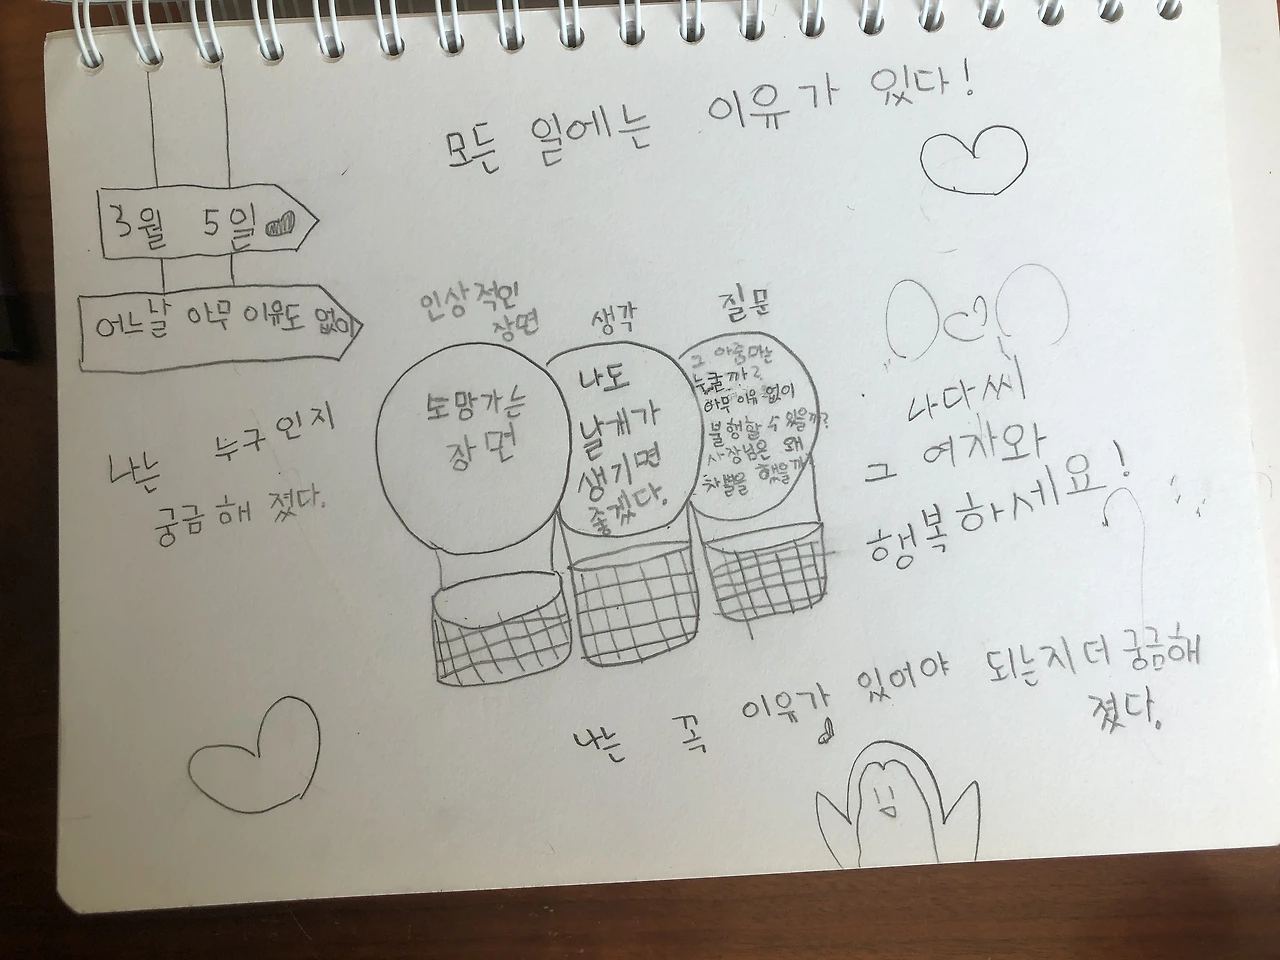 모든 일에는 이유가 있다!
3월 5일
어느날 아무 이유도 없이
인상적인
장면
도망가는
장면
생각
나도
날개가
생기면
좋겠다.
질문
그 아줌마는
누굴까?
아무 이유 없이
불행할 수 있을까?
사장님은 왜
차별을 했을까
나는 누구인지
궁금해 졌다.
나다씨
그 여자와
행복하세요!
나는 꼭 이유가 있어야 되는지 더 궁금해
졌다.